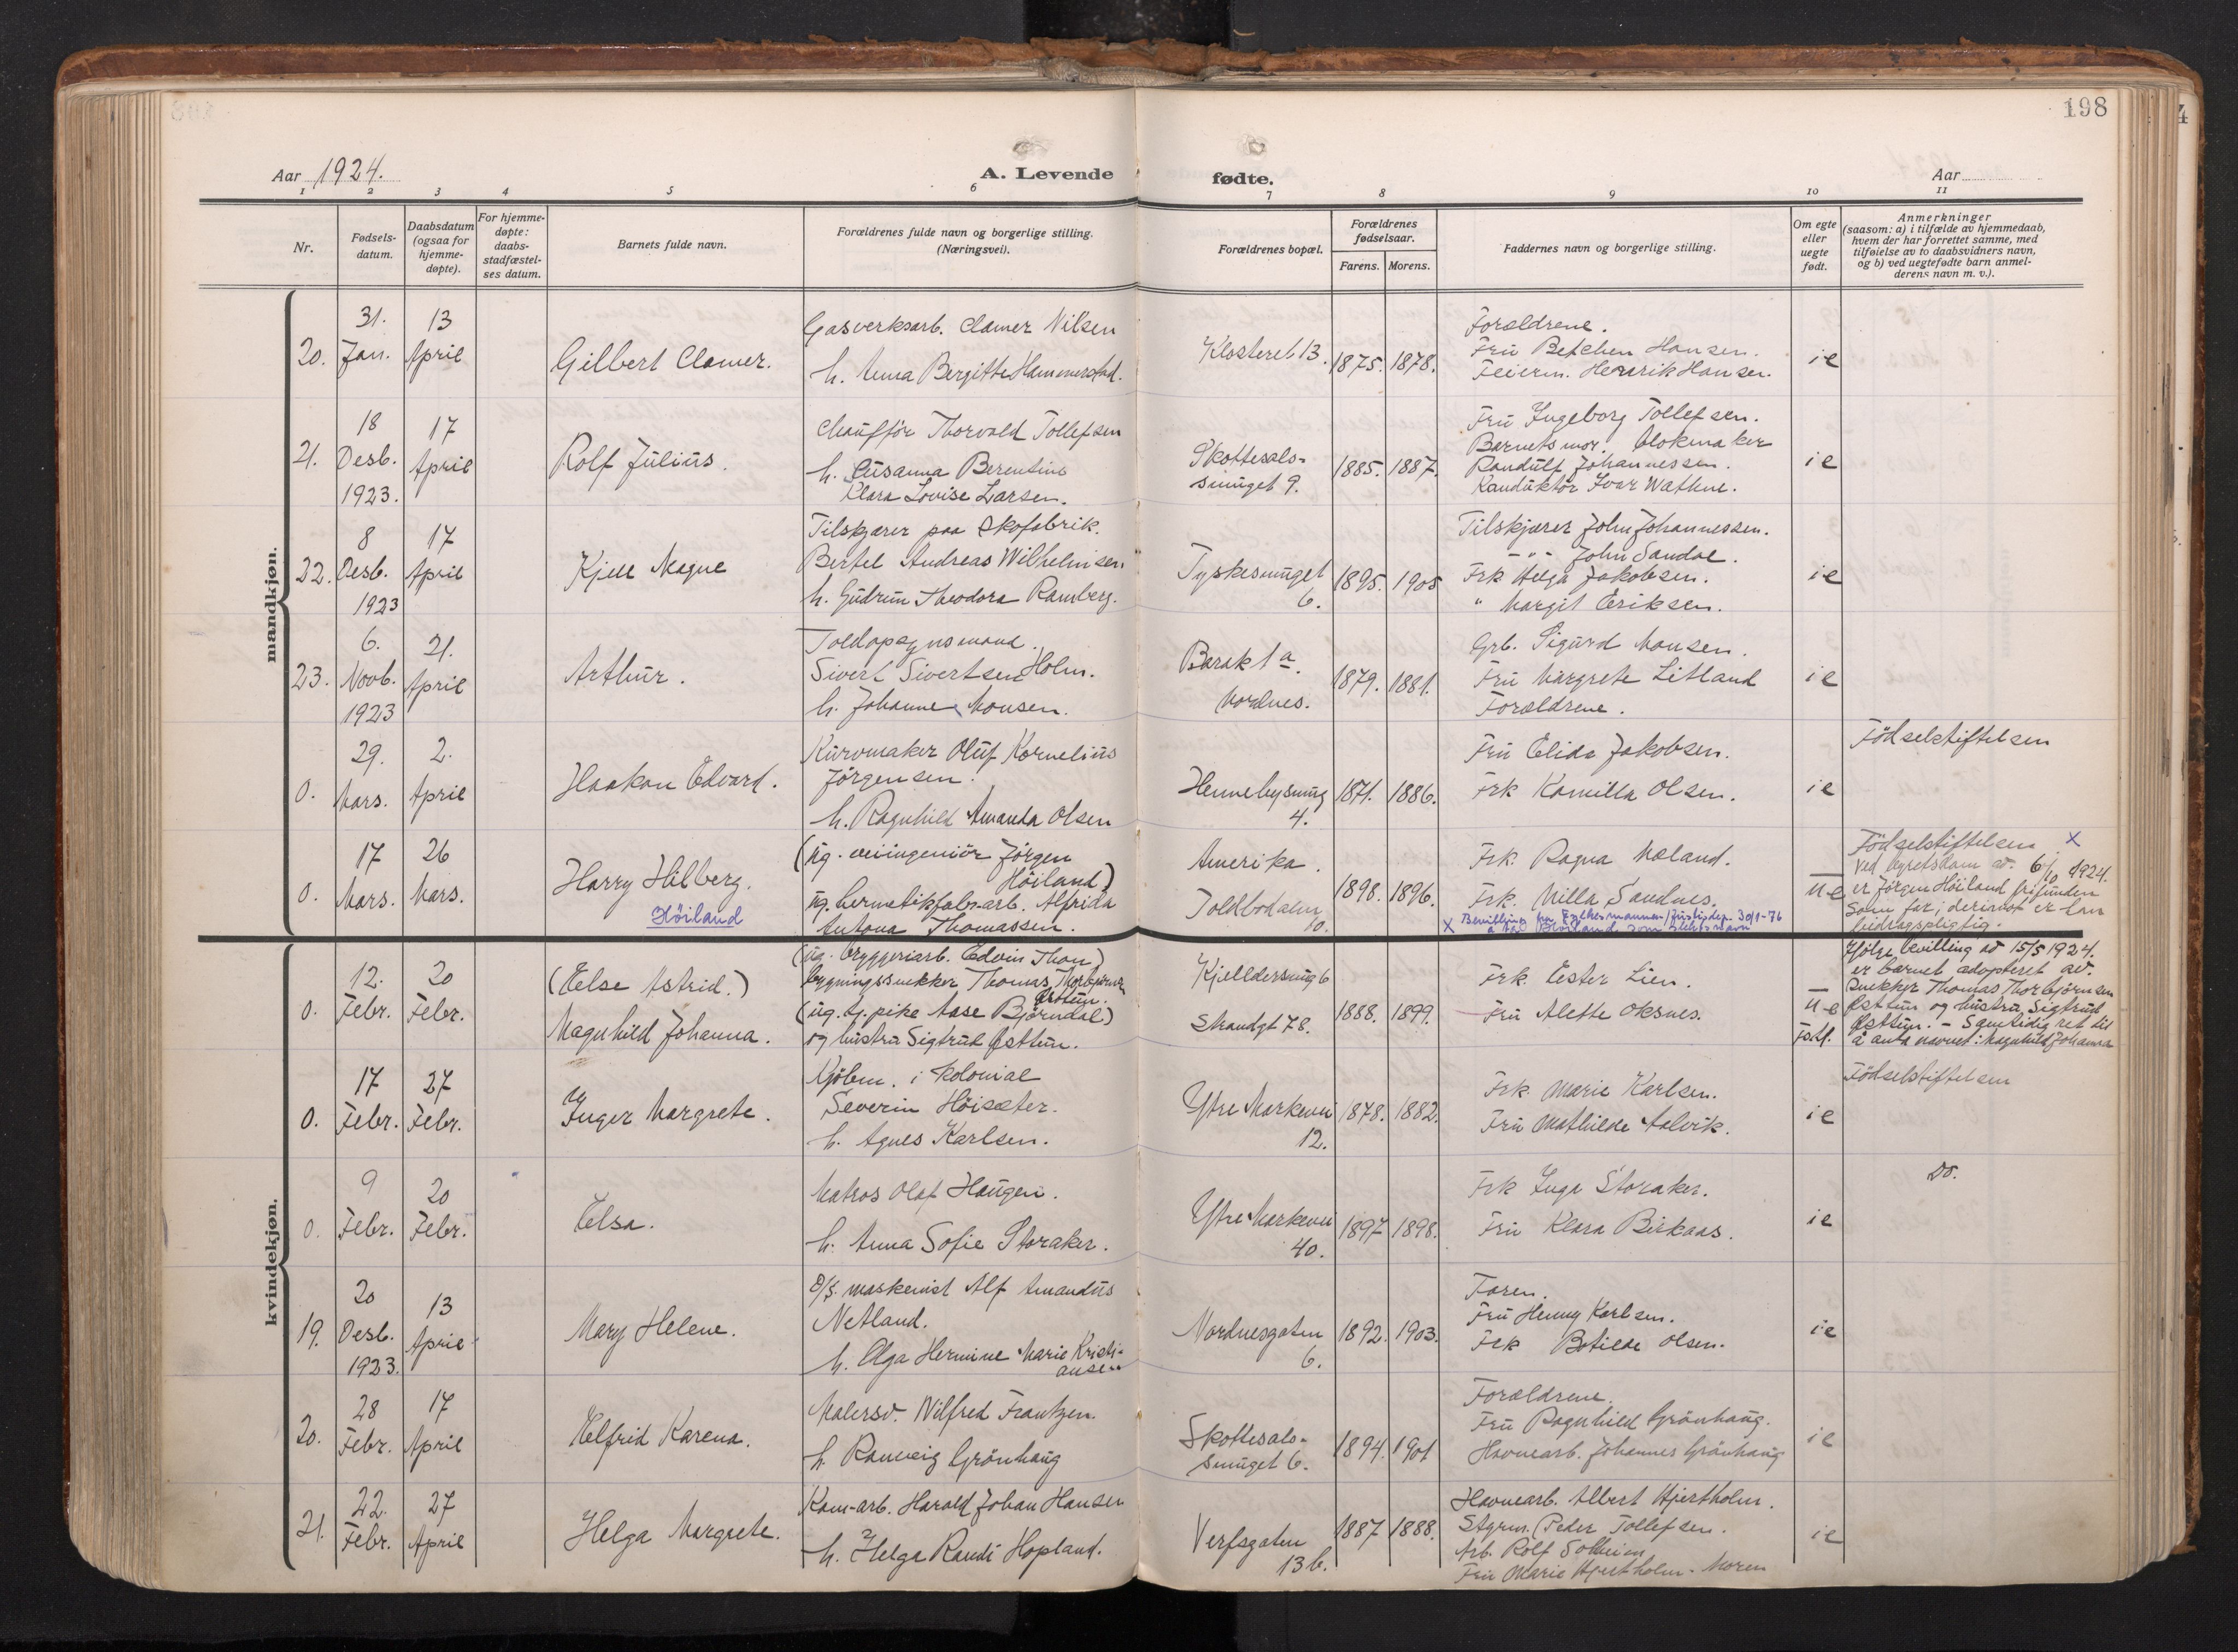 198
Aar 1924.
A. Levende
fødte.
Aar
1 2 3 4 5 6 7 8 9 10 11
Nr.
Fødsels-
datum.
Daabsdatum
(ogsaa for
hjemme-
døpte).
For hjemme-
døpte:
daabs-
stadfæstel-
ses datum.
Barnets fulde navn.
Forældrenes fulde navn og borgerlige stilling.
(Næringsvei).
Forældrenes bopæl.
Forældrenes
fødselsaar.
Farens. Morens.
Faddernes navn og borgerlige stilling.
Om egte
eller
uegte
født.
Anmerkninger
(saasom: a) i tilfælde av hjemmedaab,
hvem der har forrettet samme, med
tilføielse av to daabsvidners navn,
og b) ved uegtefødte barn anmel-
derens navn m. v.).
mandkjøn.
20.
31.
Jan.
13
April
Gilbert Clamer.
Gasverksarb. Clamer Nilsen
h. Anna Bergitte Hammerstad.
Klosteret 13.
1875. 1878.
Forældrene.
Fru Betchen Hansen.
Feierm. Henrik Hansen.
ie
21.
18
Desb.
1923.
17
April
Rolf Julius.
Chauffør Thorvald Tollefsen
h. Susanna Berentine
Klara Lovise Larsen.
Skottesals-
smuget 9.
1885. 1887.
Fru Ingeborg Tollefsen.
Barnets mor. Blokmaker
Randulf Johannessen.
Kanduktør Ivar Wathne.
ie
22.
8
Desb.
1923
17
April
Kjell Magne
Tilskjærer paa Skofabrik.
Bertel Andreas Wilhelmsen
h. Gudrun Theodora Ramberg.
Tyskesmuget
6.
1895. 1905
Tilskjærer John Johannessen.
-"- John Sandal.
Frk Helga Jakobsen.
" Margit Eriksen.
ie
23.
6.
Novb.
1923
21.
April
Arthur.
Toldopsynsmand.
Sivert Sivertsen Holm.
h. Johanne Monsen.
Barak 1 a
Nordnes.
1879. 1881.
Grb. Sigurd Monsen.
Fru Margrete Litland
Forældrene.
ie
0.
29.
Mars.
2.
April
Haakon Edvard.
Kurvmaker Oluf Kornelius
Jørgensen.
h. Ragnhild Amanda Olsen
Hennebysmug
4.
1871. 1886.
Fru Elida Jakobsen.
Frk Kamilla Olsen.
ie
Fødselstiftelsen
0.
17
Mars.
26
Mars.
Harry Hilberg.
Høiland
(ug. veiingeniør Jørgen
Høiland)
ug. hermetikfabr.arb. Alfrida
Antona Thomassen.
Amerika.
Toldbodalm
10.
1898. 1896.
Frk. Ragna Mæland.
Frk. Milla Sandnes.
X Bevilling fra Fylkesmannen/Justisdep. 30/1-76
å ta Høiland som slektsnavn
ue
Fødselstiftelsen X
Ved byretsdom av 6/10 1924.
er Jørgen Høiland frifunden
som far; derimot er han
bidragspligtig.
kvindekjøn.
0.
12.
Febr.
20
Febr.
(Else Astrid.)
Magnhild Johanna.
(ug. bryggeriarb. Edvin Thon)
bygningssnekker Thomas Thorbjørnsen
Østtun.
(ug. tj. pike Aase Bjørndal)
og hustru Sigtrud Østtun.
Kjelldersmug 6
Strandgt 78.
1888. 1899.
Frk. Ester Lien.
Fru Alette Oksnes.
ue
Ifølge bevilling av 15/5 1924.
er barnet adopteret av
snekker Thomas Thorbjørnsen
Østtun og hustru Sigtrud
Østtun. – Samtidig ret til
å anta navnet: Magnhild Johanna
Fstf.
0.
17
Febr.
27
Febr.
Inger Margrete.
Kjøbm. i Kolonial
Severin Høisæter.
h. Agnes Karlsen.
Ytre Markevei
12.
1878. 1882.
Frk. Marie Karlsen.
Fru Mathilde Aalvik.
ie
Fødselstiftelsen
0.
9
Febr.
20
Febr.
Elsa.
Matros Olaf Haugen.
h. Anna Sofie Storaker.
Ytre Markevei
40.
1897 1898.
Frk Inga Storaker.
Fru Klara Birkaas.
ie
Do.
19.
20
Desb.
1923.
13
April
Mary Helene.
D/S. maskinist Alf Amandus
Netland.
h. Olga Hermine Marie Kristi-
ansen
Nordnesgaten
6.
1892. 1903.
Faren.
Fru Henny Karlsen.
Frk Botilde Olsen.
ie
20.
28
Febr.
17
April
Elfrid Karena.
Malersv. Wilfred Frantzen.
h. Ranveig Grönhaug
Skottesals-
smuget 6.
1894. 1901
Forældrene.
Fru Ragnhild Grönhaug.
Havnearb. Johannes Grönhaug
ie
21.
22.
Febr.
27
April
Helga Margrete.
Kom-arb. Harald Johan Hansen
h. Helga Randi Hopland.
Verfsgaten
13 b.
1887 1888.
Havnearb. Albert Hjertholm.
Styrm. Peder Tollefsen.
Arb. Rolf Solheim
Fru Marie Hjertholm - Moren
ie